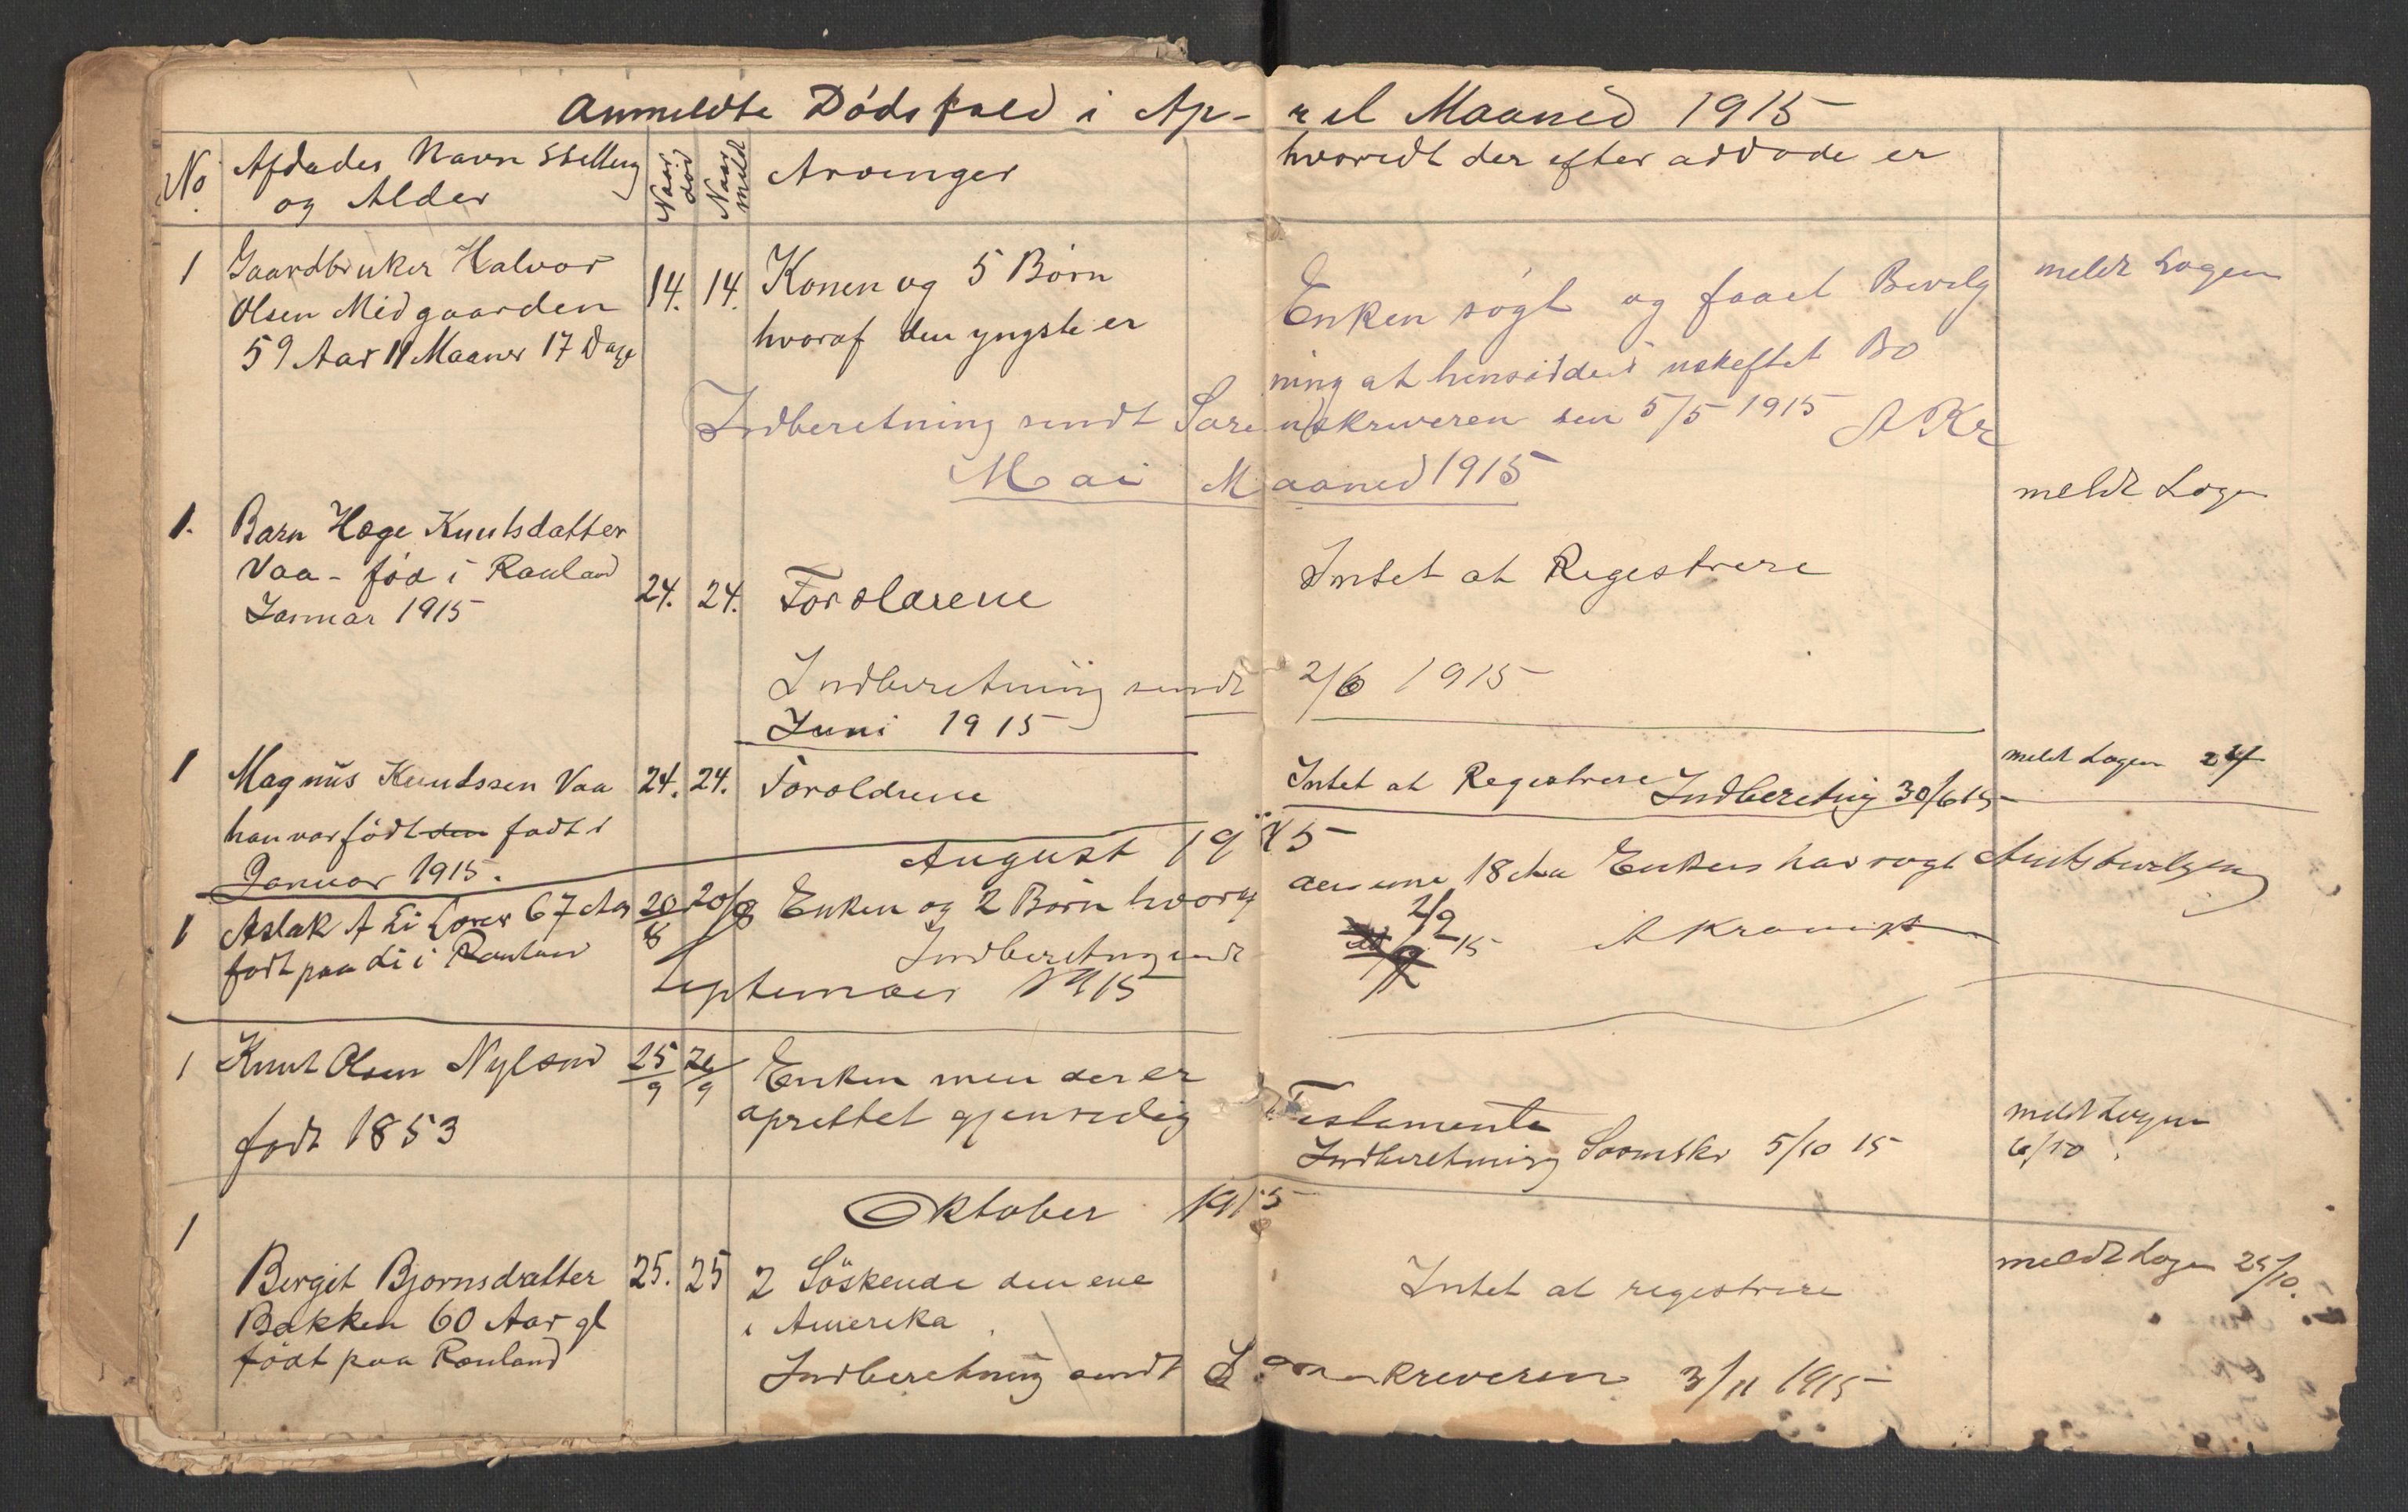 Anmeldte Dödsfald i Ap- ril Maaned 1915
No Afdødes Navn Stilling og Alder Naar död Naar meld Arvinger hvorvidt der efter avdøde er
1 Gaardbruker Halvor
Olsen Midgaarden
59 Aar 11 Maaner 17 Dage
14. 14.
Konen og 5 Börn
hvoraf den yngste er
Enken sögt og faaet Bevilg
ning at hensidde i uskeftet Bo
meldt Logen
Indberetning sendt Sorenskriveren den 5/5 1915 A Kr
Mai Maaned 1915
1. Barn Hæge Knutsdatter
Vaa - föd i Rauland
Januar 1915
24. 24. Forældrene
Intet at Registrere
meldt Logen
Indberetning sendt 2/6 1915
Juni 1915
1 Magnus Knudssen Vaa 24. 24. Foroldrene
han var födt den født i
Januar 1915.
Intet at Registrere Indberetnig 30/6 15
meldt Logen 24
August 1915
1 Aslak A Li 67 Aar 20/8 20/8 Enken og 2 Börn hvoraf
født paa Li i Rauland
den ene 18 Aa Enken har søgt Amtsbevilgning
Indberetning sendt 2/9 15 A Kromviget
September 1915
1 Knut Olsen Nylænd 25/9 26/9 Enken men der er
født 1853
oprettet gjensidig Testamente
Indberetning Sornskr 5/10 15
meldt Logen
6/10
Oktober 1915
1
Bergit Bjornsdatter 25. 25 2 Söskende den ene
Bakken 60 Aar gl i Amerika
födt paa Rauland
Intet at registrere
meldt Logen 25/10.
Indberetning sendt Sorenskreveren 3/11 1915